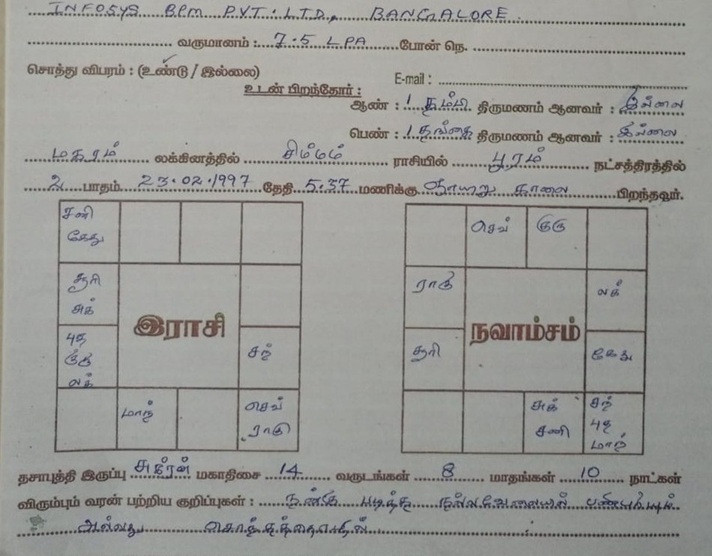 INFOSYS BPM PVT. LTD, BANGALORE.
வருமானம் : 7.5 LPA போன் நெ.
சொத்து விபரம் : (உண்டு / இல்லை) E-mail :
உடன் பிறந்தோர் :
ஆண் : 1 தம்பி திருமணம் ஆனவர் : இல்லை
பெண் : 1 தங்கை திருமணம் ஆனவர் : இல்லை
மகரம் லக்கினத்தில் சிம்மம் ராசியில் பூரம் நட்சத்திரத்தில்
2 பாதம் 23.02.1997 தேதி 5.37 மணிக்கு ஞாயிறு காலை பிறந்தவர்.
சனி
கேது
சூரி
சுக்
புத
குரு
லக்
இராசி
சந்
மாந்
செவ்
ராகு
செவ் குரு
ராகு
லக்
நவாம்சம்
சூரி
கேது
சுக்
சனி
சந்
புத
மாந்
தசாபுத்தி இருப்பு சுக்ரன் மகாதிசை 14 வருடங்கள் 8 மாதங்கள் 10 நாட்கள்
விரும்பும் வரன் பற்றிய குறிப்புகள் : நன்கு படித்த நல்லவேலையில்
அல்லது